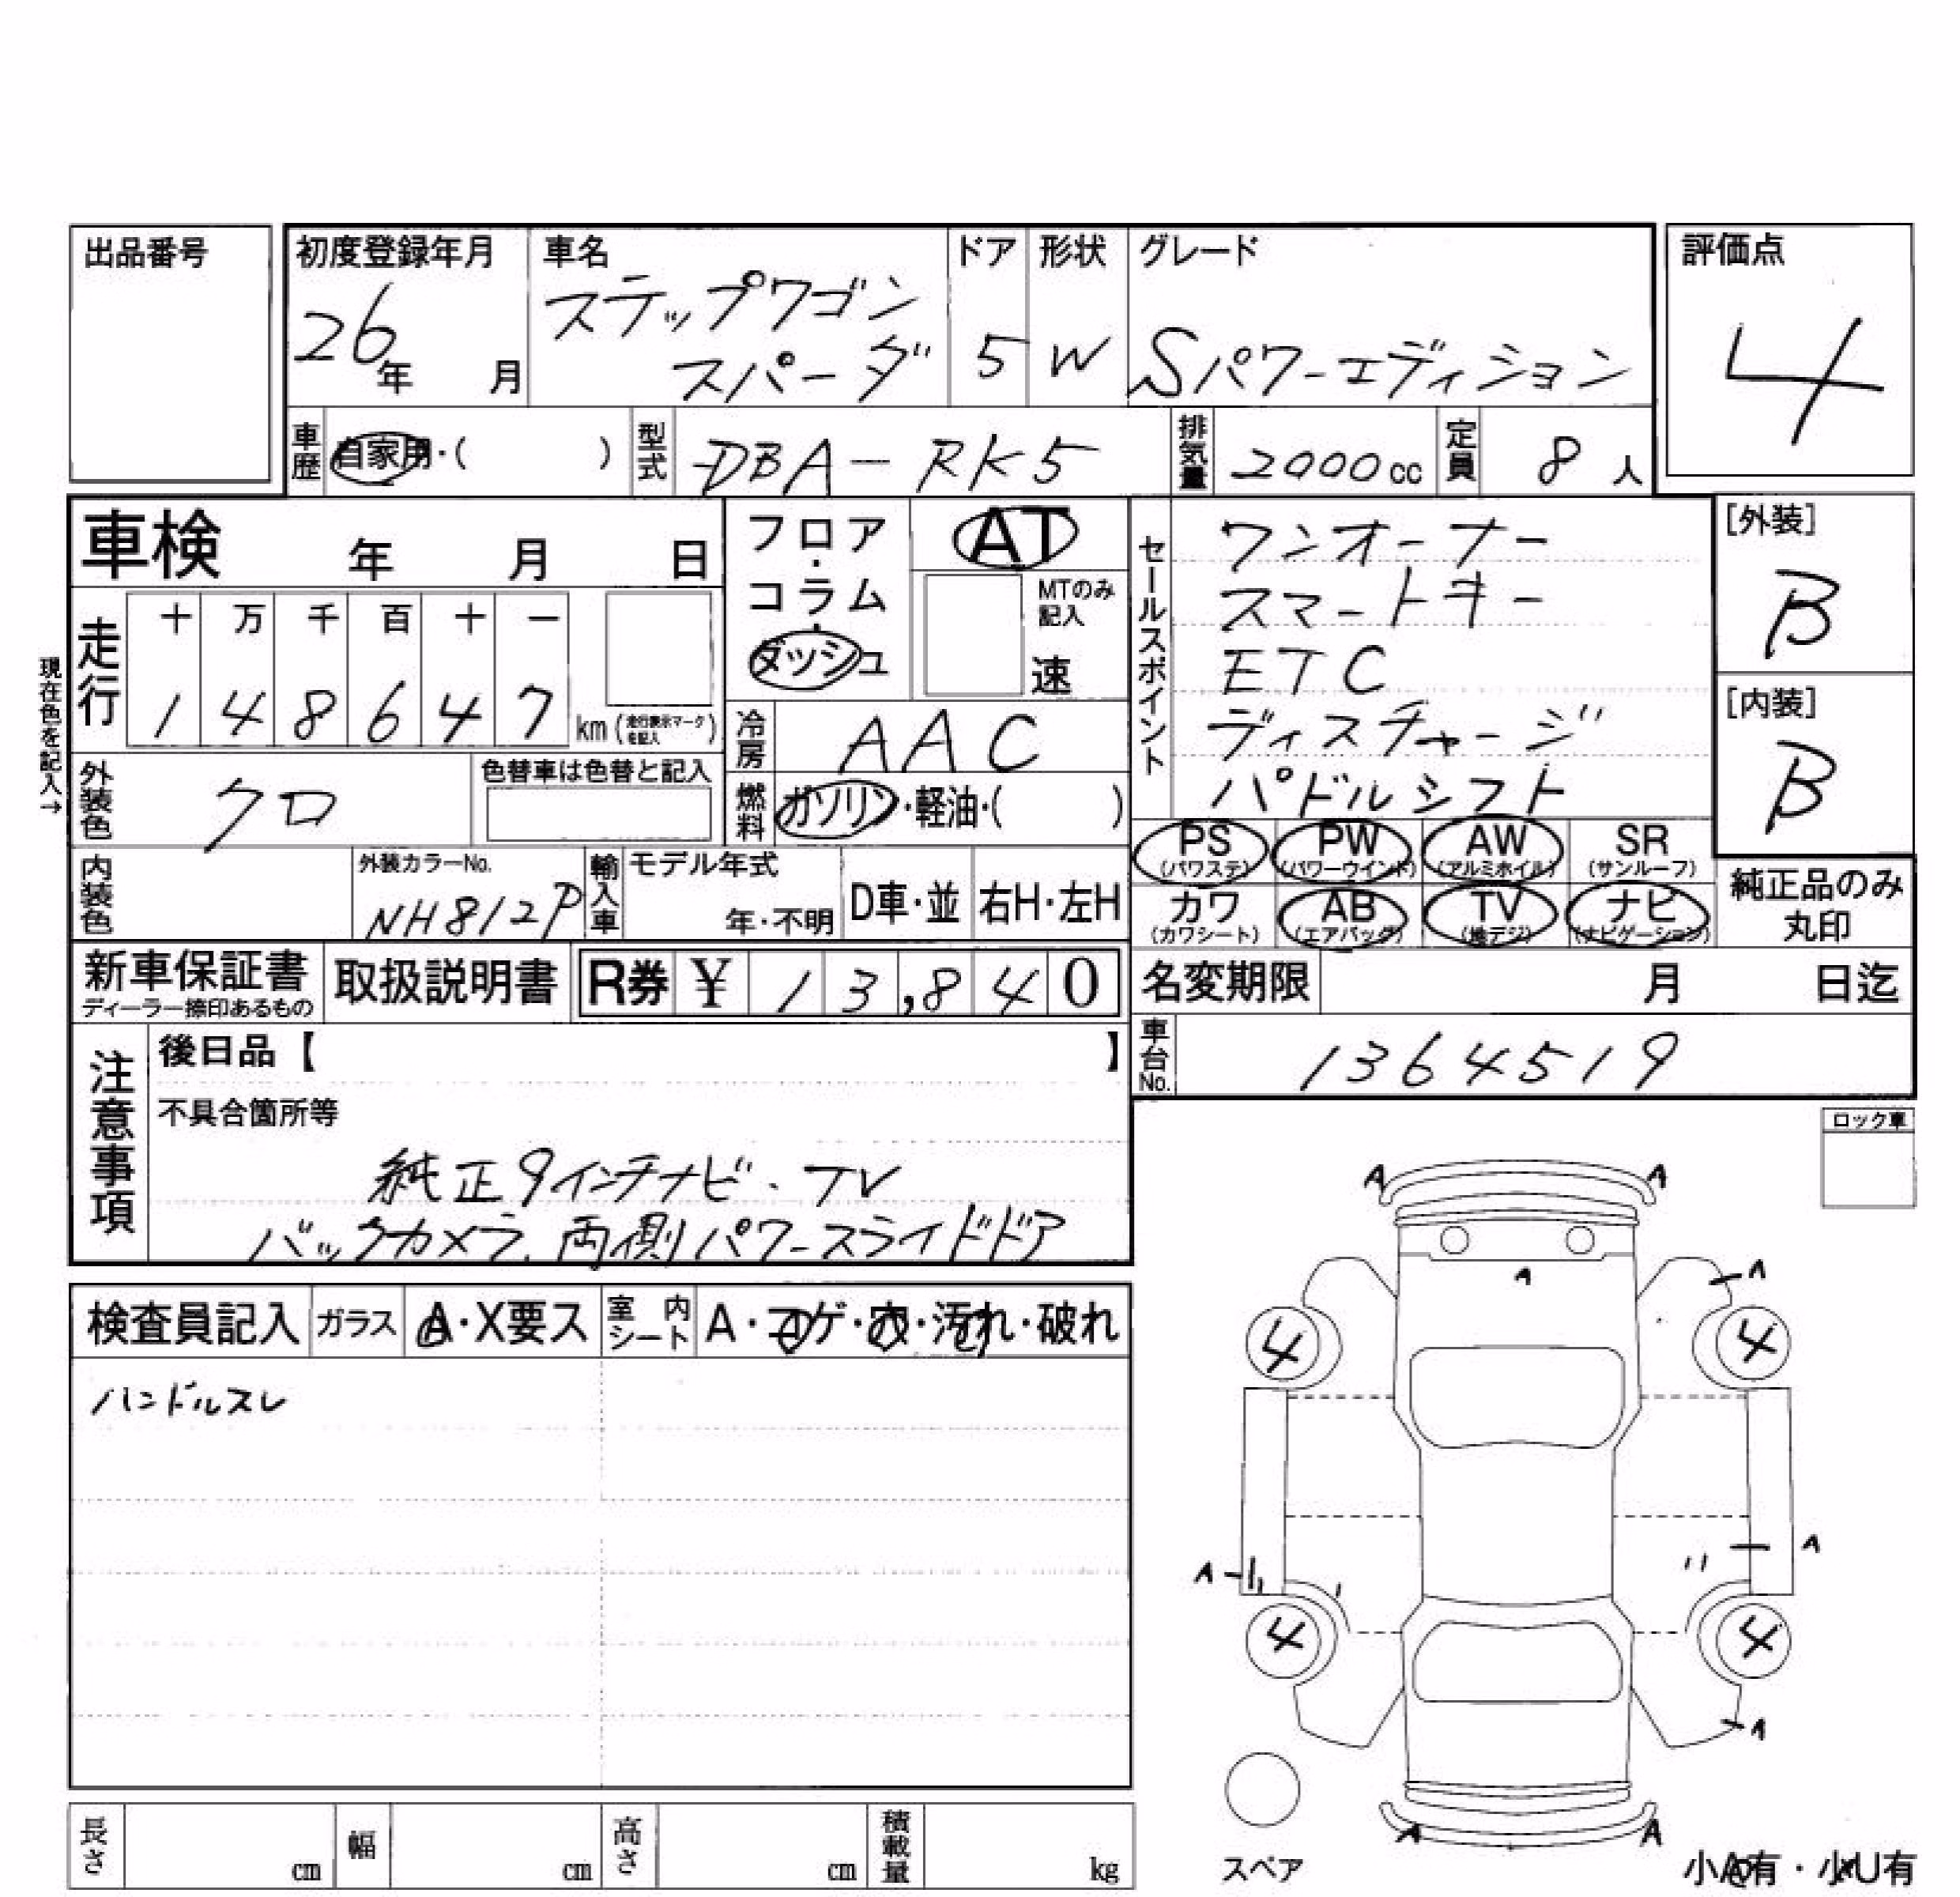 出品番号
初度登録年月
26年 月
車名
ステップワゴン
スパーダ
ドア
5
形状
W
グレード
Sパワーエディション
評価点
4
車歴 自家用・( )
型式 DBA-RK5
排気量 2000cc
定員 8人
車検 年 月 日
フロア・
コラム・
ダッシュ
AT
MTのみ
記入
速
セールスポイント
ワンオーナー
スマートキー
ETC
ディスチャージ
パドルシフト
[外装]
B
[内装]
B
現在色を記入→
走行
十 万 千 百 十 一
1 4 8 6 4 7 km(走行表示マークを記入)
冷房 AAC
外装色 クロ
色替車は色替と記入
燃料 ガソリン・軽油・( )
PS
(パワステ)
PW
(パワーウインド)
AW
(アルミホイル)
SR
(サンルーフ)
カワ
(カワシート)
AB
(エアバッグ)
TV
(地デジ)
ナビ
(ナビゲーション)
純正品のみ
丸印
内装色
外装カラーNo.
NH812P
輸入車
モデル年式
年・不明
D車・並
右H・左H
新車保証書
ディーラー捺印あるもの
取扱説明書
R券 ¥ 13,840
名変期限 月 日迄
車台No. 1364519
注意事項
後日品【 】
不具合箇所等
純正9インチナビ・TV
バックカメラ、両側パワースライドドア
ロック車
検査員記入
ガラス A・X要ス
室内シート A・コゲ・穴・汚れ・破れ
ハンドルスレ
A A
A
A
4 4
A A
4 4
A
A A
スペア
小A有・小U有
長さ cm
幅 cm
高さ cm
積載量 kg